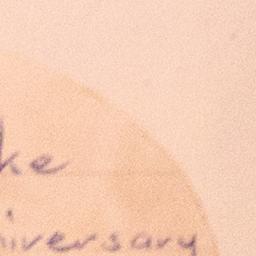 ke
niversary